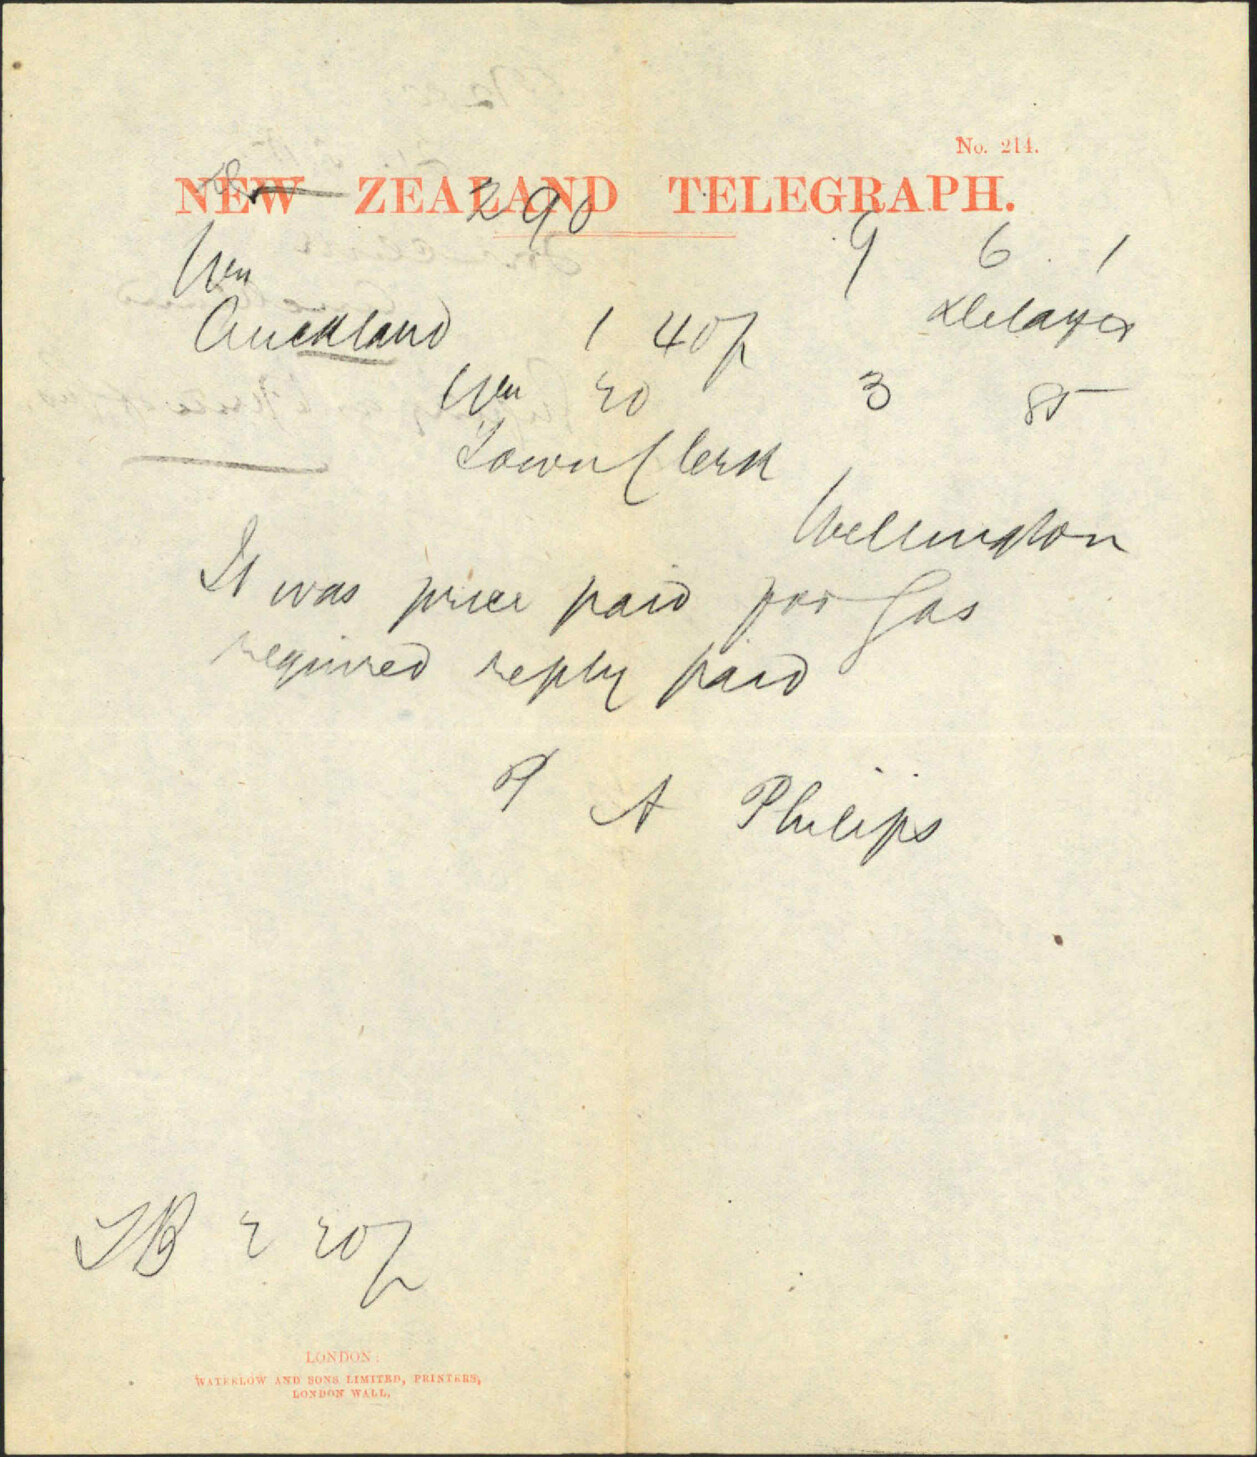 No. 214.
NEW ZEALAND TELEGRAPH.
290
Wn 9 6 1
Auckland 1 40p Delayed
Wn 20 3 85
Town Clerk
Wellington
It was price paid for Gas
required reply paid
P A Philips
TB 2 20p
LONDON:
WATERLOW AND SONS LIMITED, PRINTERS,
LONDON WALL.